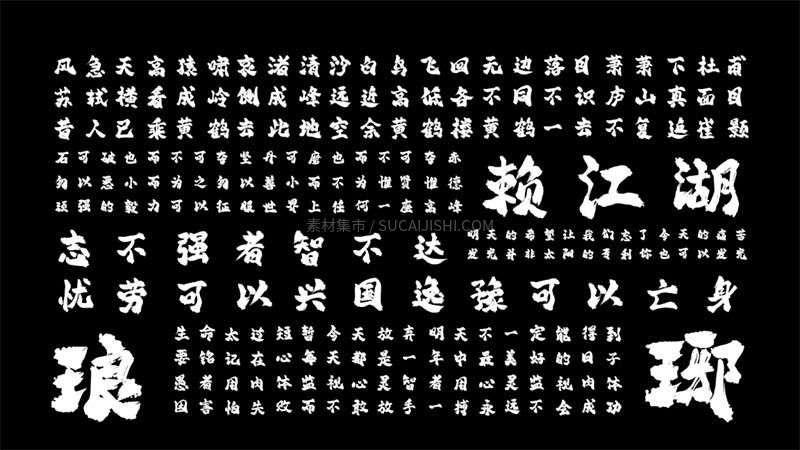 风急天高猿啸哀渚清沙白鸟飞回无边落日萧萧下杜甫
苏轼横看成岭侧成峰远近高低各不同不识庐山真面目
昔人已乘黄鹤去此地空余黄鹤楼黄鹤一去不复返崔颢
石可破也而不可夺坚丹可磨也而不可夺赤
勿以恶小而为之勿以善小而不为惟贤惟德
顽强的毅力可以征服世界上任何一座高峰
赖江湖
素材集市 / SUCAIJISHI.COM
志不强者智不达
明天的希望让我们忘了今天的痛苦
发光并非太阳的专利你也可以发光
忧劳可以兴国逸豫可以亡身
琅
生命太过短暂今天放弃明天不一定能得到
要铭记在心每天都是一年中最美好的日子
愚者用肉体监视心灵智者用心灵监视肉体
因害怕失败而不敢放手一搏永远不会成功
琊